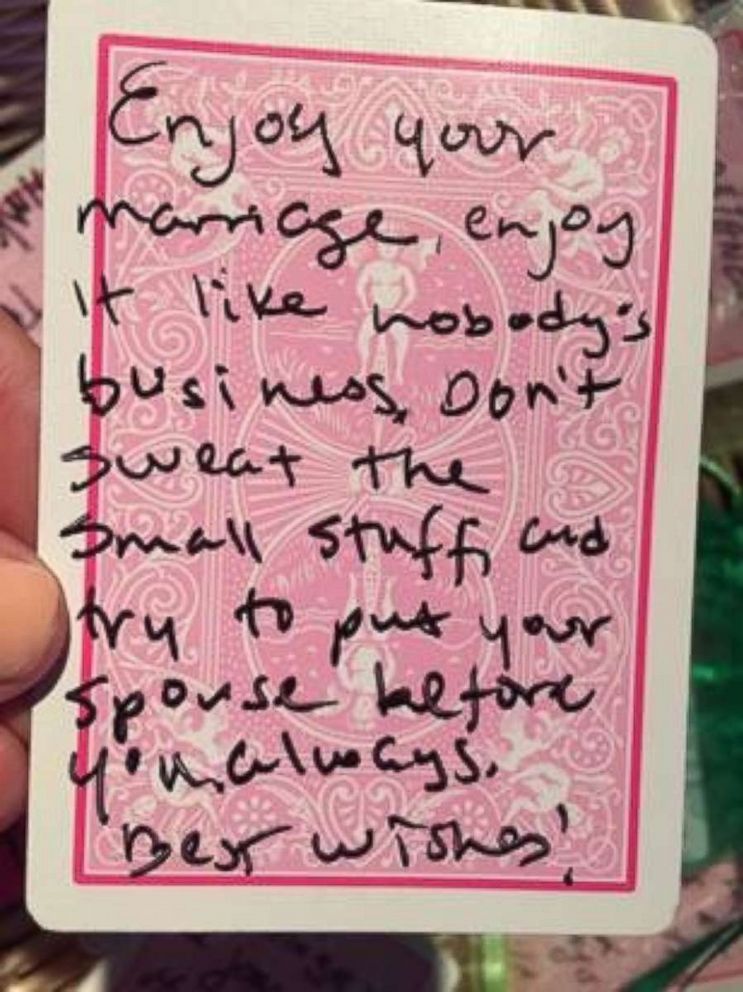 Enjoy your
marriage, enjoy
it like nobody's
business. Don't
sweat the
small stuff, and
try to put your
spouse before
you, always.
"Best wishes"